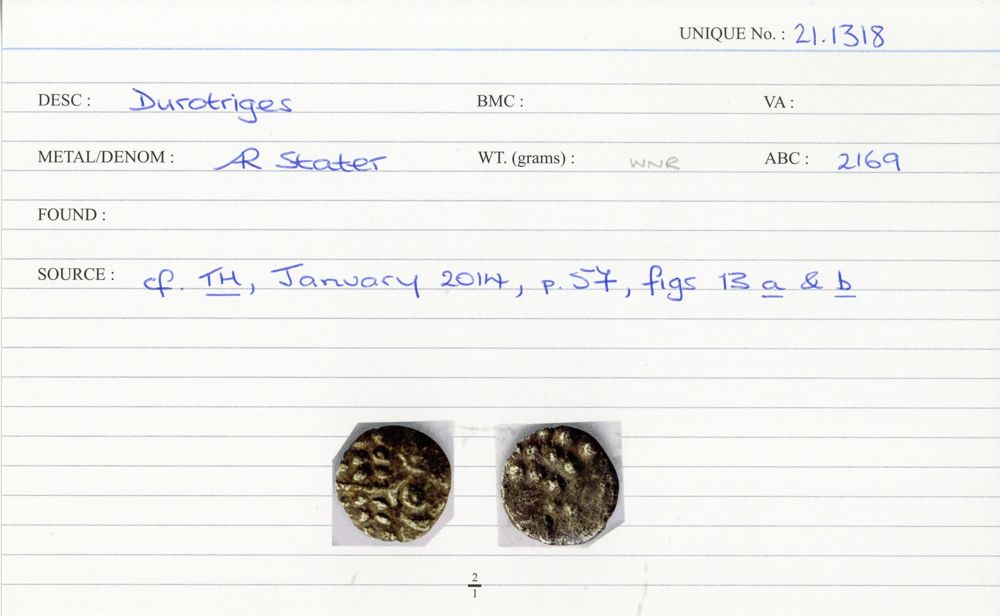 UNIQUE No. : 21.1318
DESC : Durotriges BMC : VA :
METAL/DENOM : AR Stater WT. (grams) : WNR ABC : 2169
FOUND :
SOURCE : cf. TH, January 2014, p. 57, figs 13 a & b
2
1